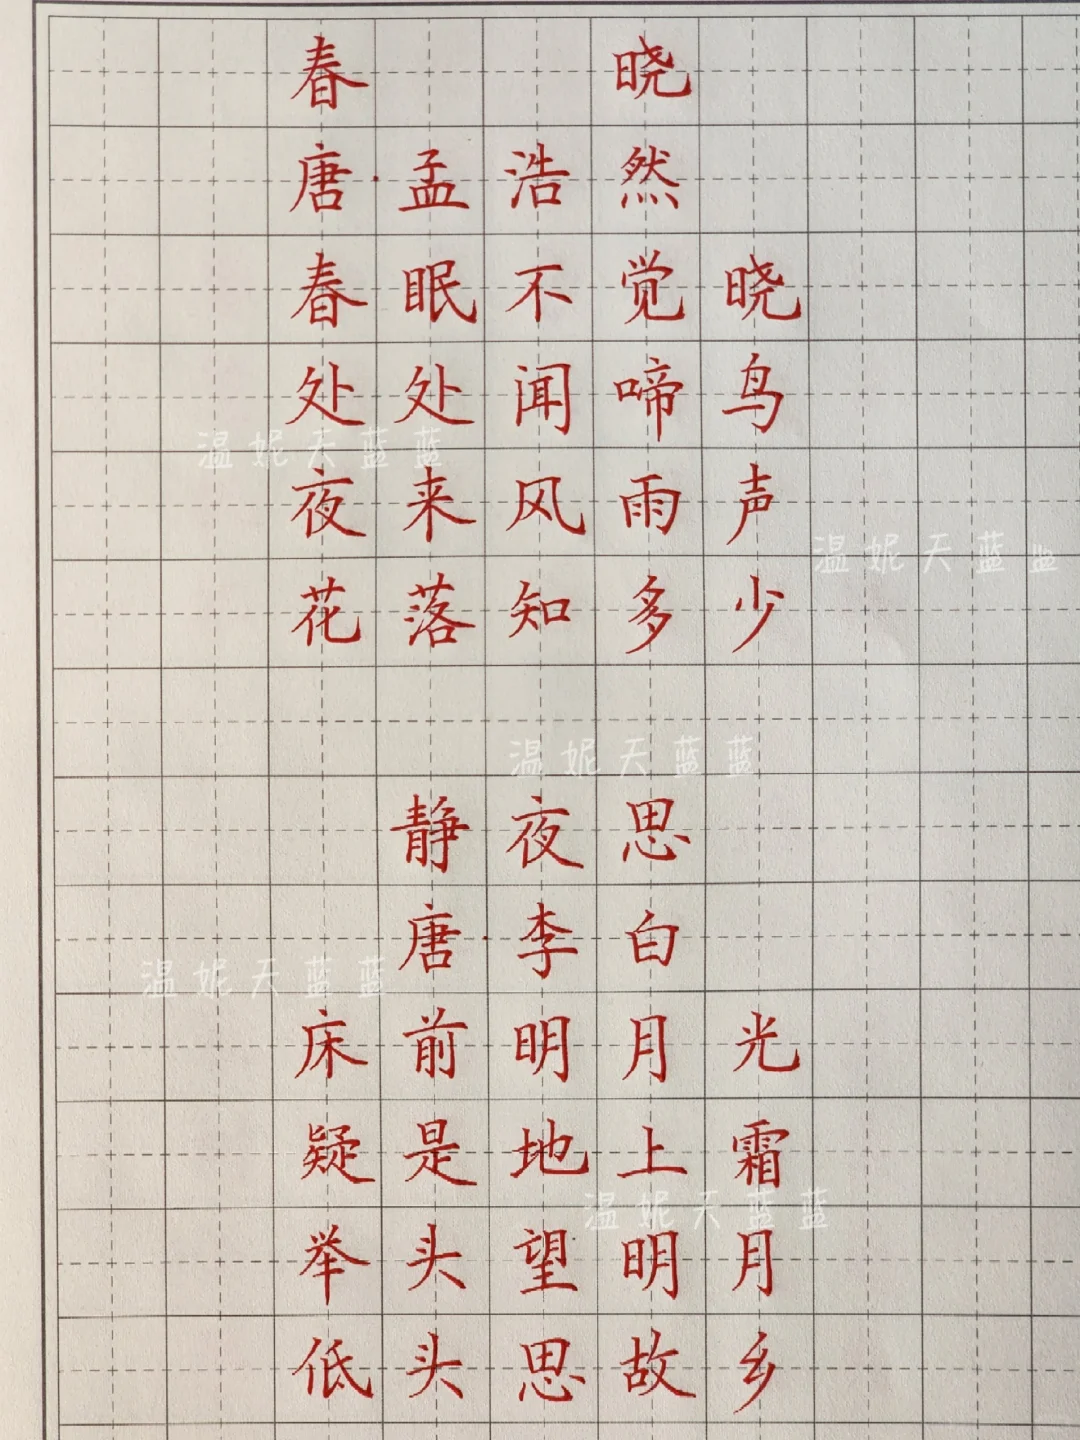 春 晓
唐·孟浩然
春眠不觉晓
处处闻啼鸟
温妮天蓝蓝
夜来风雨声
温妮天蓝蓝
花落知多少
温妮天蓝蓝
静夜思
唐·李白
温妮天蓝蓝
床前明月光
疑是地上霜
温妮天蓝蓝
举头望明月
低头思故乡